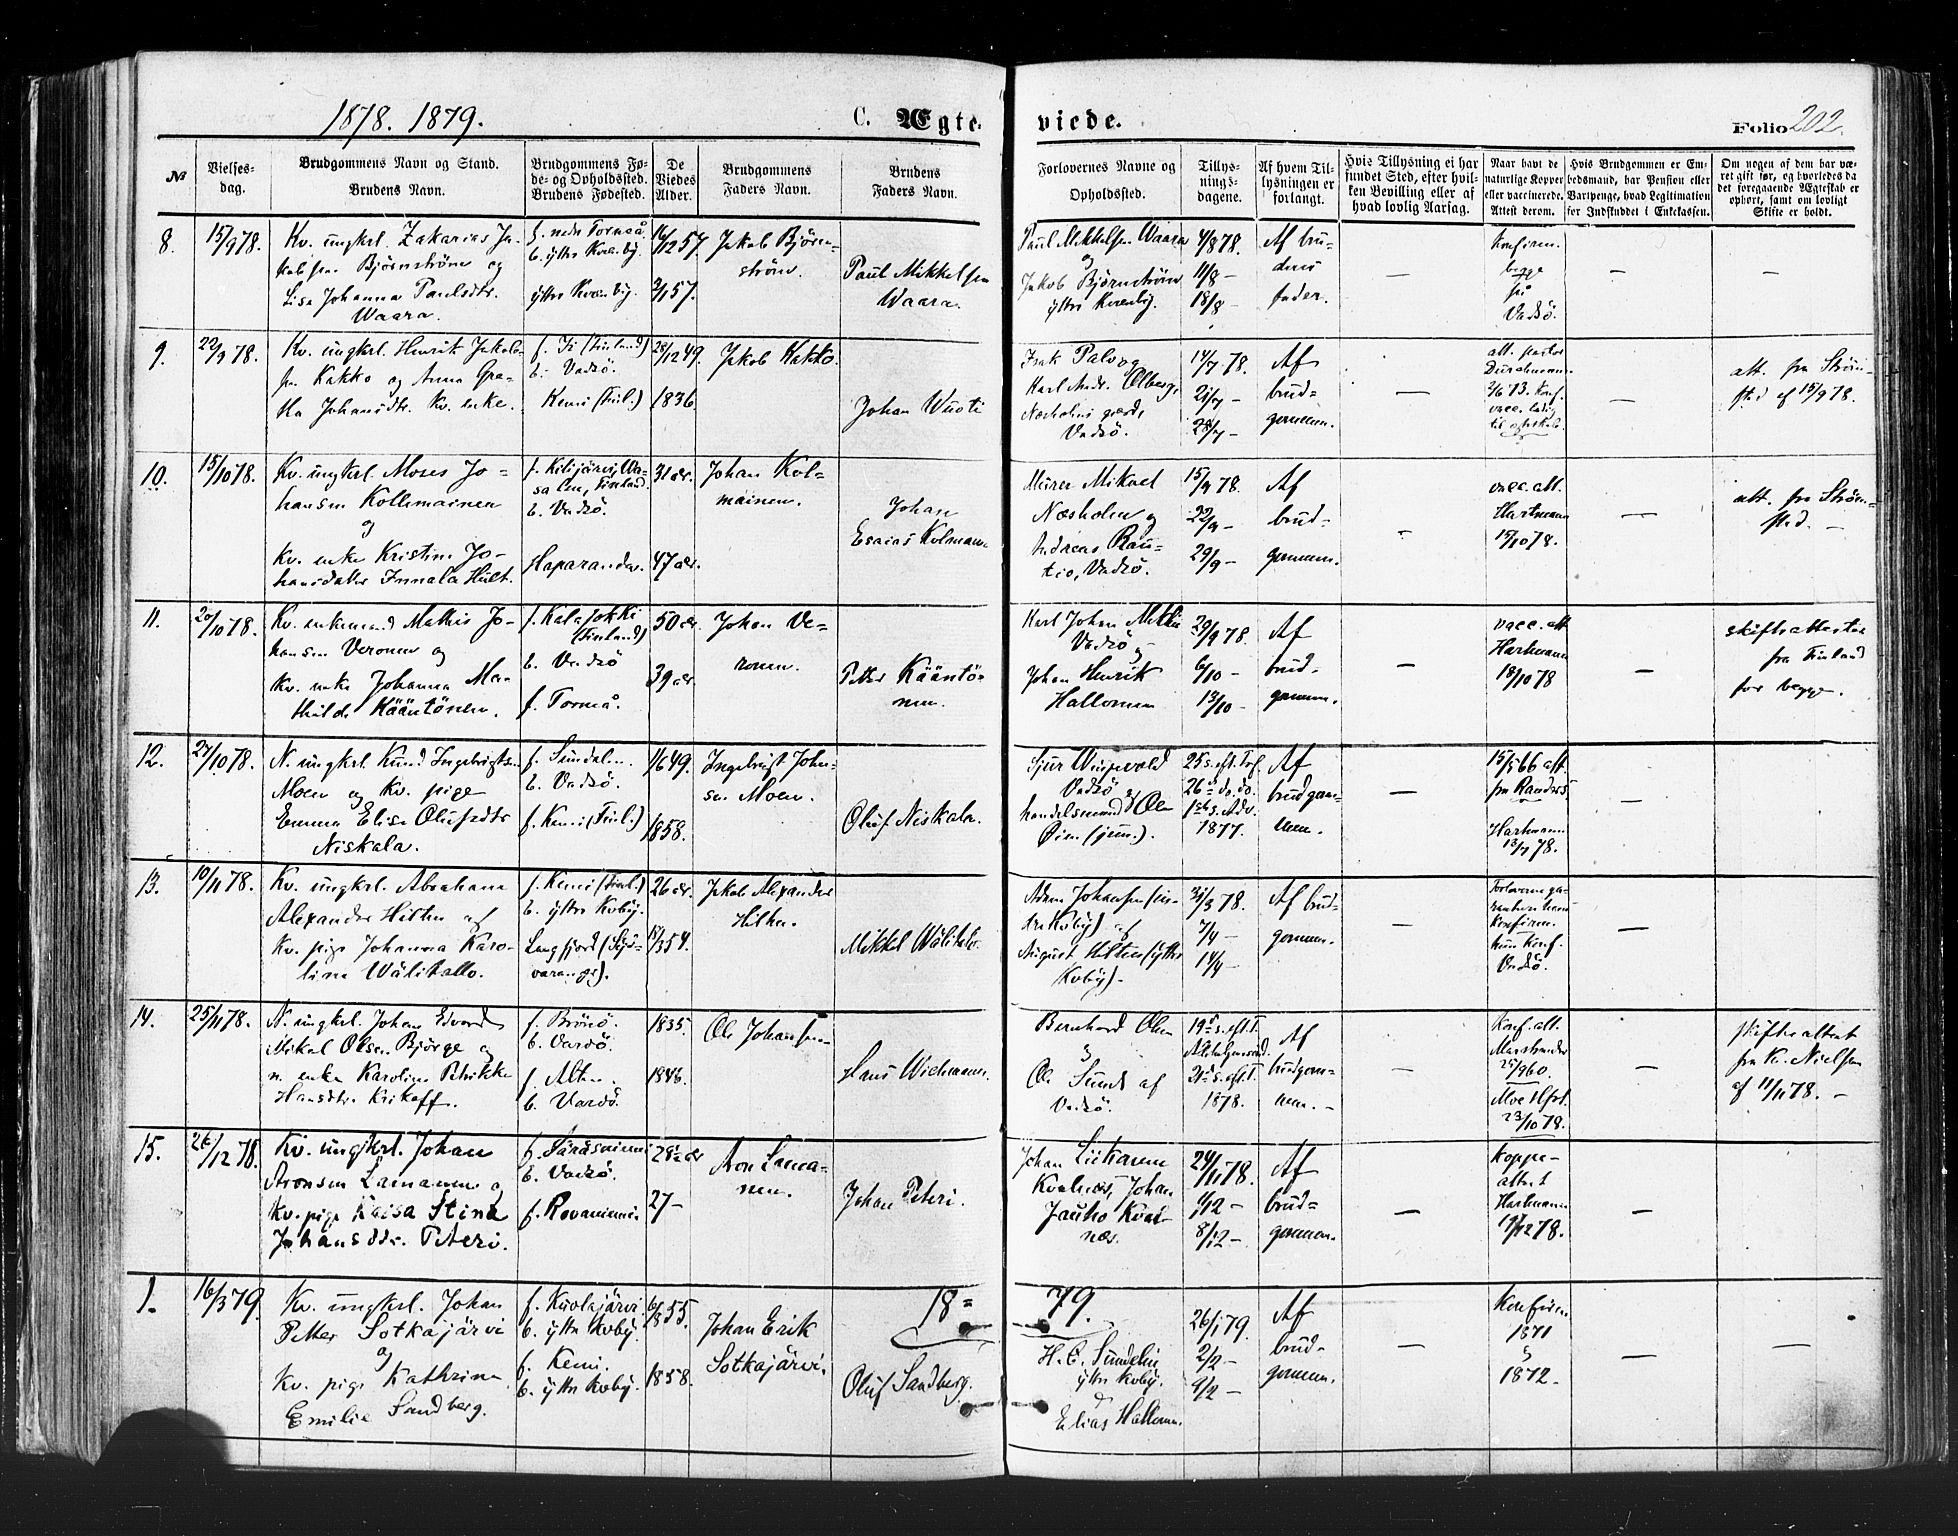 1878. 1879.
C. Ægte-
viede.
Folio 202.
No
Vielses-
dag.
Brudgommens Navn og Stand.
Brudens Navn.
Brudgommens Fø-
de- og Opholdssted.
Brudens Fødested.
De
Viedes
Alder.
Brudgommens
Faders Navn.
Brudens
Faders Navn.
Forlovernes Navne og
Opholdssted.
Tillys-
nings-
dagene.
Af hvem Til-
lysningen er
forlangt.
Hvis Tillysning ei har
fundet Sted, efter hvil-
ken Bevilling eller af
hvad lovlig Aarsag.
Naar havt de
naturlige Kopper
eller vaccinerede.
Attest derom.
Hvis Brudgommen er Em-
bedsmand, har Pension eller
Vartpenge, hvad Legitimation
for Indskuddet i Enkekassen.
Om nogen af dem har væ-
ret gift før, og hvorledes da
det foregaaende Ægteskab er
ophørt, samt om lovligt
Skifte er holdt.
8.
15/9 78.
Kv. ungkrl. Zakarias Ja-
kobsen Bjørnstrøm og
Lisa Johanna Paulsdtr.
Waara.
f. nedr. Torneå.
b. yttre Kvænby.
yttre Kvænby.
16/12 57.
2/1 57.
Jakob Bjørn-
strøm.
Paul Mikkelsen
Waara.
Paul Mikkelsen Waara
og
Jakob Bjørnstrøm
yttre Kvenby.
4/8 78.
11/8 –
18/8 –
Af bru-
dens
fader.
—
Konfirm.
begge
på
Vadsö.
—
—
9.
22/9 78.
Kv. ungkrl. Henrik Jakob-
sen Kakko og Anna Gre-
ta Johansdtr. Kv. enke.
f. Ii (Finland)
b. Vadsö.
Kemi (Finl.)
28/12 49.
1836.
Jakob Kakko.
Johan Wuoti
Isak Palo og
Karl Andr. Olberg,
Næsholms gård,
Vadsö.
14/7 78.
21/7 –
28/7 –
Af
brud-
gommen.
—
att. pastor
2/6 73. Konf.
vacc. ledig
til ægtskab.
—
att. fra Strøm-
sted af 15/9 78.
10.
15/10 78.
Kv. ungkrl. Moses Jo-
hansen Kollmainen
og
Kv. enke Kristine Jo-
hansdatter Innala Hult.
b. Vadsö.
Haparanda.
31 år.
47 år.
Johan Kol-
mainen.
Johan
Esaias Kolman.
Murer Mikael
Næsholm og
Andreas Rau-
tio, Vadsö.
15/9 78.
22/9 –
29/9 –
Af
brud-
gommen.
–
vacc. att.
Hartmann
15/10 78.
—
att. fra Strøm-
sted. –
11.
20/10 78.
Kv. enkemand Mathis Jo-
hansen Veronen og
Kv. enke Johanna Ma-
thilde Kääntönen.
f. Kalajokki
(Finland)
b. Vadsö
f. Torneå.
50 år.
39 år.
Johan Ve-
ronen.
Petter Kääntö-
nen.
Karl Johan
Vadsö og
Johan Henrik
Hallonen
29/9 78.
6/10 –
13/10 –
Af
brud-
gommen.
—
vacc. att
Hartmann
18/10 78
—
skifteattester
fra Finland
for begge.
12.
27/10 78.
N. ungkrl. Knud Ingebrigtsen
Moen og Kv. pige
Emma Elise Olufsdtr
Niskala.
f. Sundalen.
b. Vadsö.
f. Kemi (Finl.)
1858.
Ingebrigt John-
sen Moen.
Oluf Niskala.
Sjur
Vadsö og
handelsmand Ole
Øien (jun.).
25 s. eft. Tref.
26 do. do.
1ste s. Adv.
1877.
Af
brudgom-
men.
—
15/5 66 att.
fra Randers
Hartmann
13/7 78.
—
13.
10/11 78.
Kv. ungkrl. Abraham
Alexander Hilten og
Kv. pige Johanna Karo-
lina Wälitallo.
f. Kemi (Finl.)
b. yttre Kvby.
Langfjord (Syd-
varanger).
26 år.
15/3 54.
Jakob Alexander
Hilten.
Mikkel Wälitalo.
Adam Johansen (in-
dre Kvby) og
August Hilten (yttre
Kvby).
31/3 78.
7/4 –
14/4 –
Af brud-
gommen.
—
Forloverne ga-
rantere ham
konfirm.
hun konf.
Vadsö.
—
14.
25/11 78.
N. ungkrl. Johan Edvard
Mikal Olsen Bjørge og
n. enke Karoline Petrikke
Hansdtr. Krikoff.
f. Brönö.
b. Vardö.
f. Alten.
b. Vardö.
1835.
1846.
Ole Johansen
Hans Wielmann.
Bernhard Olsen
&
Ole Sund af
Vadsö.
19de s. eft. T.
21de s. eft. T.
1878.
Af
brudgom-
men. –
—
Konf. att.
25/9 60.
23/10 78.
—
skifteattest
fra K. Nielsen
af 11/11 78. –
15.
26/12 78.
Kv. ungkrl. Johan
Aronsen Lamanen og
Kv. pige Kaisa Stina
Johansdtr. Peteri.
f. Säräsniemi
b. Vadsö.
f. Rovaniemi.
28½ år
27 –
Aron Lama-
nen.
Johan Peteri.
Johan
Kvalnæs, Johan
Jauho Kval-
næs.
24/11 78.
1/12 –
8/12 –
Af
brud-
gommen.
—
Koppe-
attest
Hartmann
19/12 78.
—
18=
79.
1.
16/3 79.
Kv. ungkrl. Johan
Petter Sotkajärvi
og
Kv. pige Kathrine
Emilie Sandberg.
f. Kuolajärvi
b. yttre Kvby.
f. Kemi.
b. yttre Kvby.
6/8 55.
1858.
Johan Erik
Sotkajärvi.
Oluf Sandberg.
H. C. Sundelin
yttre Kvby.
&
Elias Hallonen.
26/1 79.
2/2 –
9/2 –
Af
brud-
gommen.
—
Konfirm.
1871
&
1872.
—
—